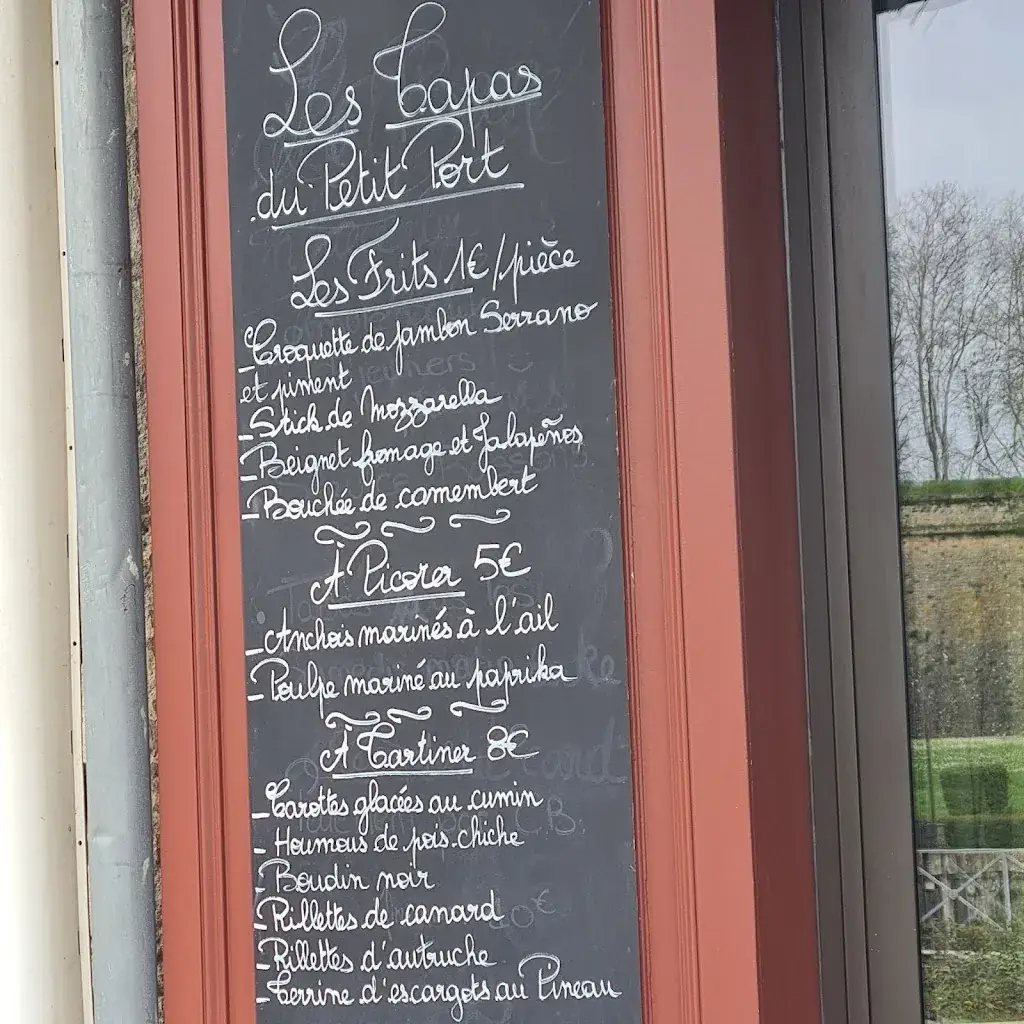 Les Tapas
du Petit Port
Les Frits 1€/pièce
- Croquette de jambon Serrano
et piment
- Stick de Mozzarella
- Beignet fromage et Jalapeños
- Bouchée de camembert
À Picorer 5€
- Anchois marinés à l'ail
- Poulpe mariné au paprika
À Tartiner 8€
- Carottes glacées au cumin
- Houmous de pois-chiche
- Boudin noir
- Rillettes de canard
- Rillettes d'autruche
- Terrine d'escargots au Pineau